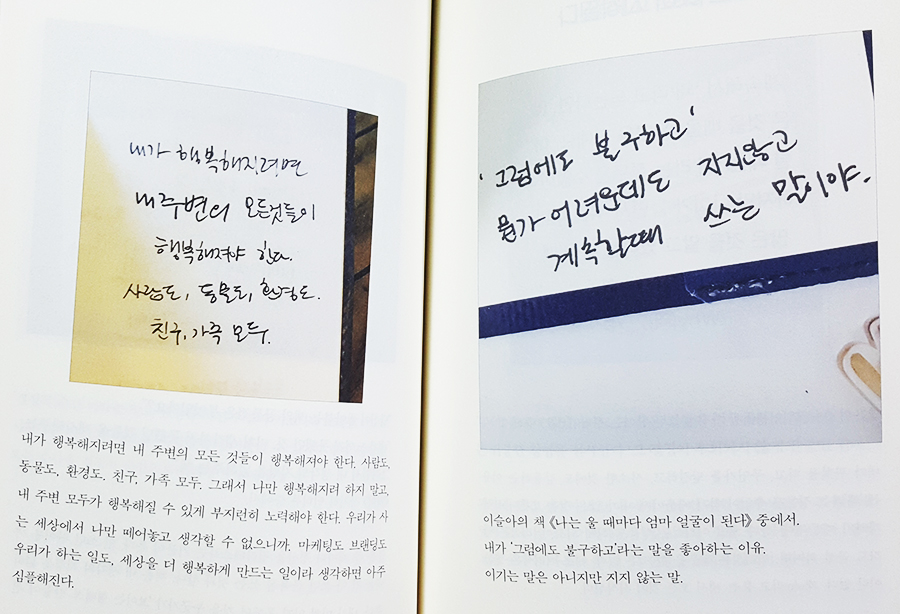 내가 행복해지려면
내 주변의 모든것들이
행복해져야 한다.
사람도, 동물도, 환경도.
친구, 가족 모두.
내가 행복해지려면 내 주변의 모든 것들이 행복해져야 한다. 사람도,
동물도, 환경도. 친구, 가족 모두. 그래서 나만 행복해지려 하지 말고,
내 주변 모두가 행복해질 수 있게 부지런히 노력해야 한다. 우리가 사
는 세상에서 나만 떼어놓고 생각할 수 없으니까. 마케팅도 브랜딩도
우리가 하는 일도, 세상을 더 행복하게 만드는 일이라 생각하면 아주
심플해진다.
'그럼에도 불구하고'
뭔가 어려운데도 지지않고
계속할때 쓰는 말이야.
이슬아의 책 《나는 울 때마다 엄마 얼굴이 된다》 중에서.
내가 '그럼에도 불구하고'라는 말을 좋아하는 이유.
이기는 말은 아니지만 지지 않는 말.